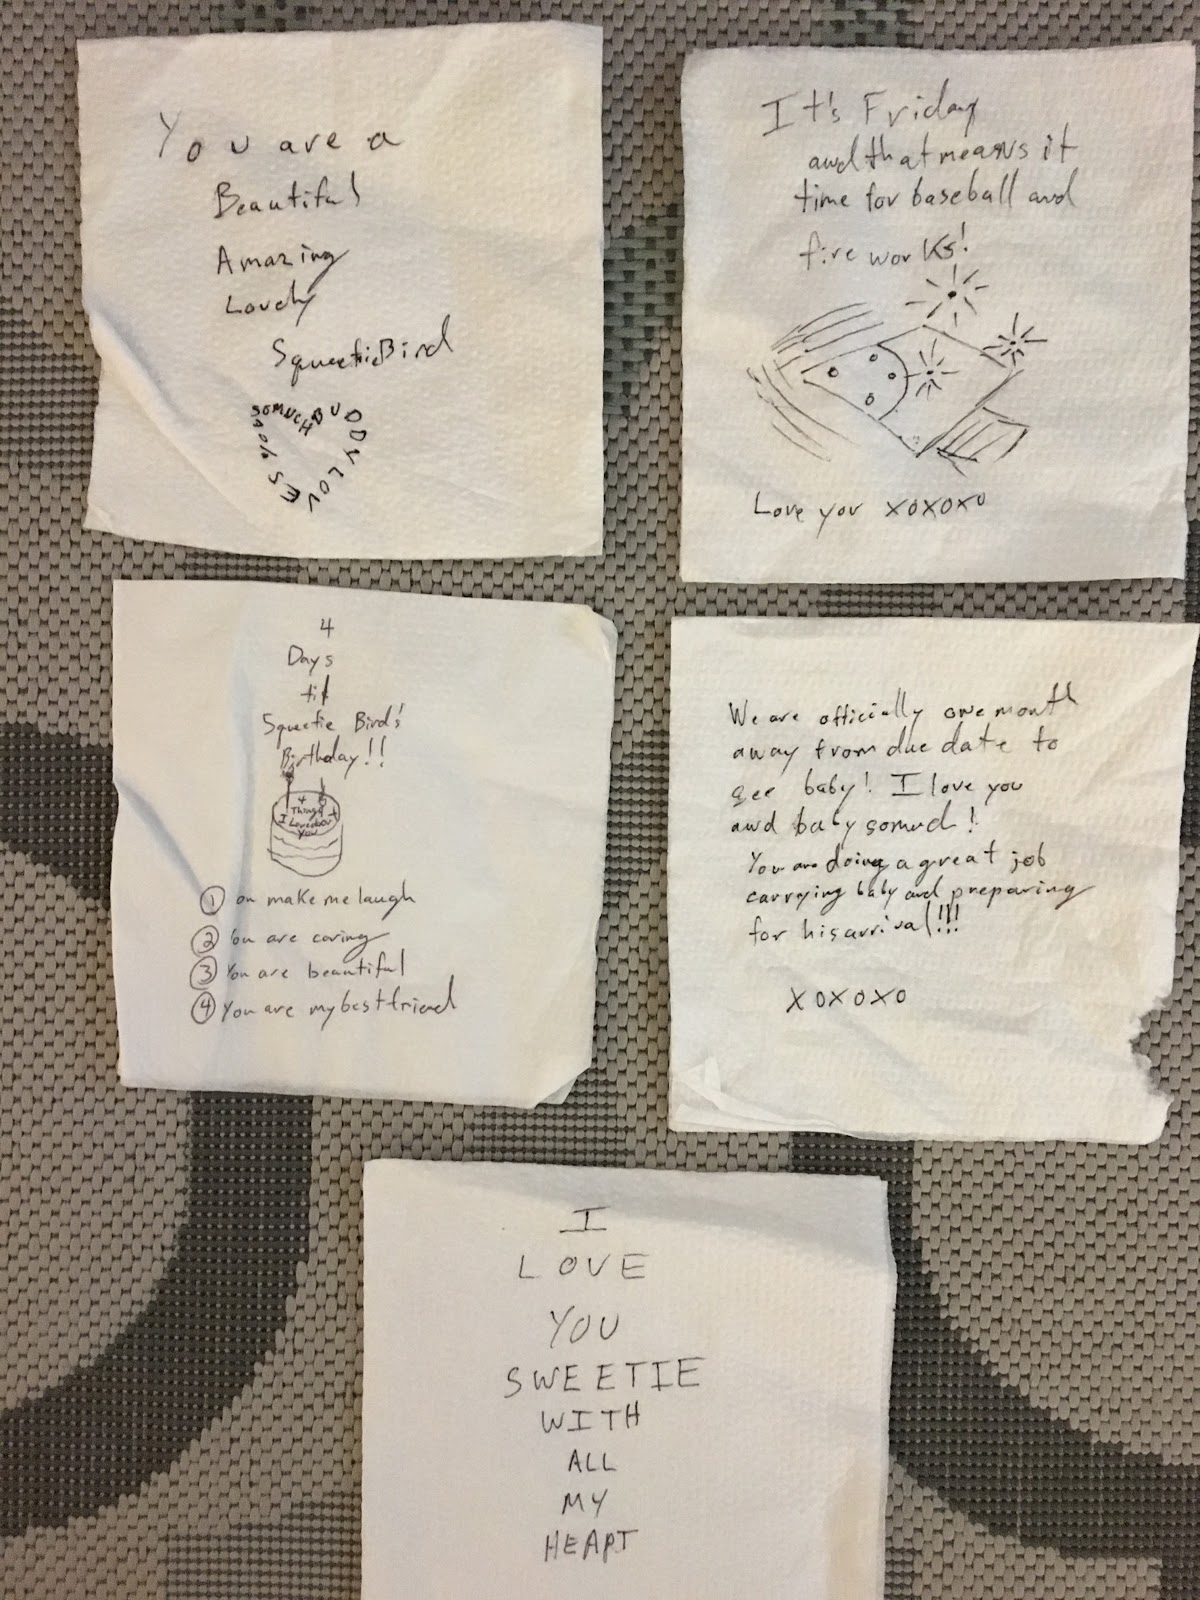 You are a
Beautiful
Amazing
Lovely
SqueetieBird
BUDDY LOVES YOU SO MUCH
It's Friday
and that means it
time for baseball and
fireworks!
Love you XOXOXO
4
Days
til
Squeetie Bird's
Birthday!!
4
Things
I Love about
You
① You make me laugh
② You are caring
③ You are beautiful
④ You are my best friend
We are officially one month
away from due date to
see baby! I love you
and baby somuch!
You are doing a great job
carrying baby and preparing
for his arrival!!!
XOXOXO
I
LOVE
YOU
SWEETIE
WITH
ALL
MY
HEART